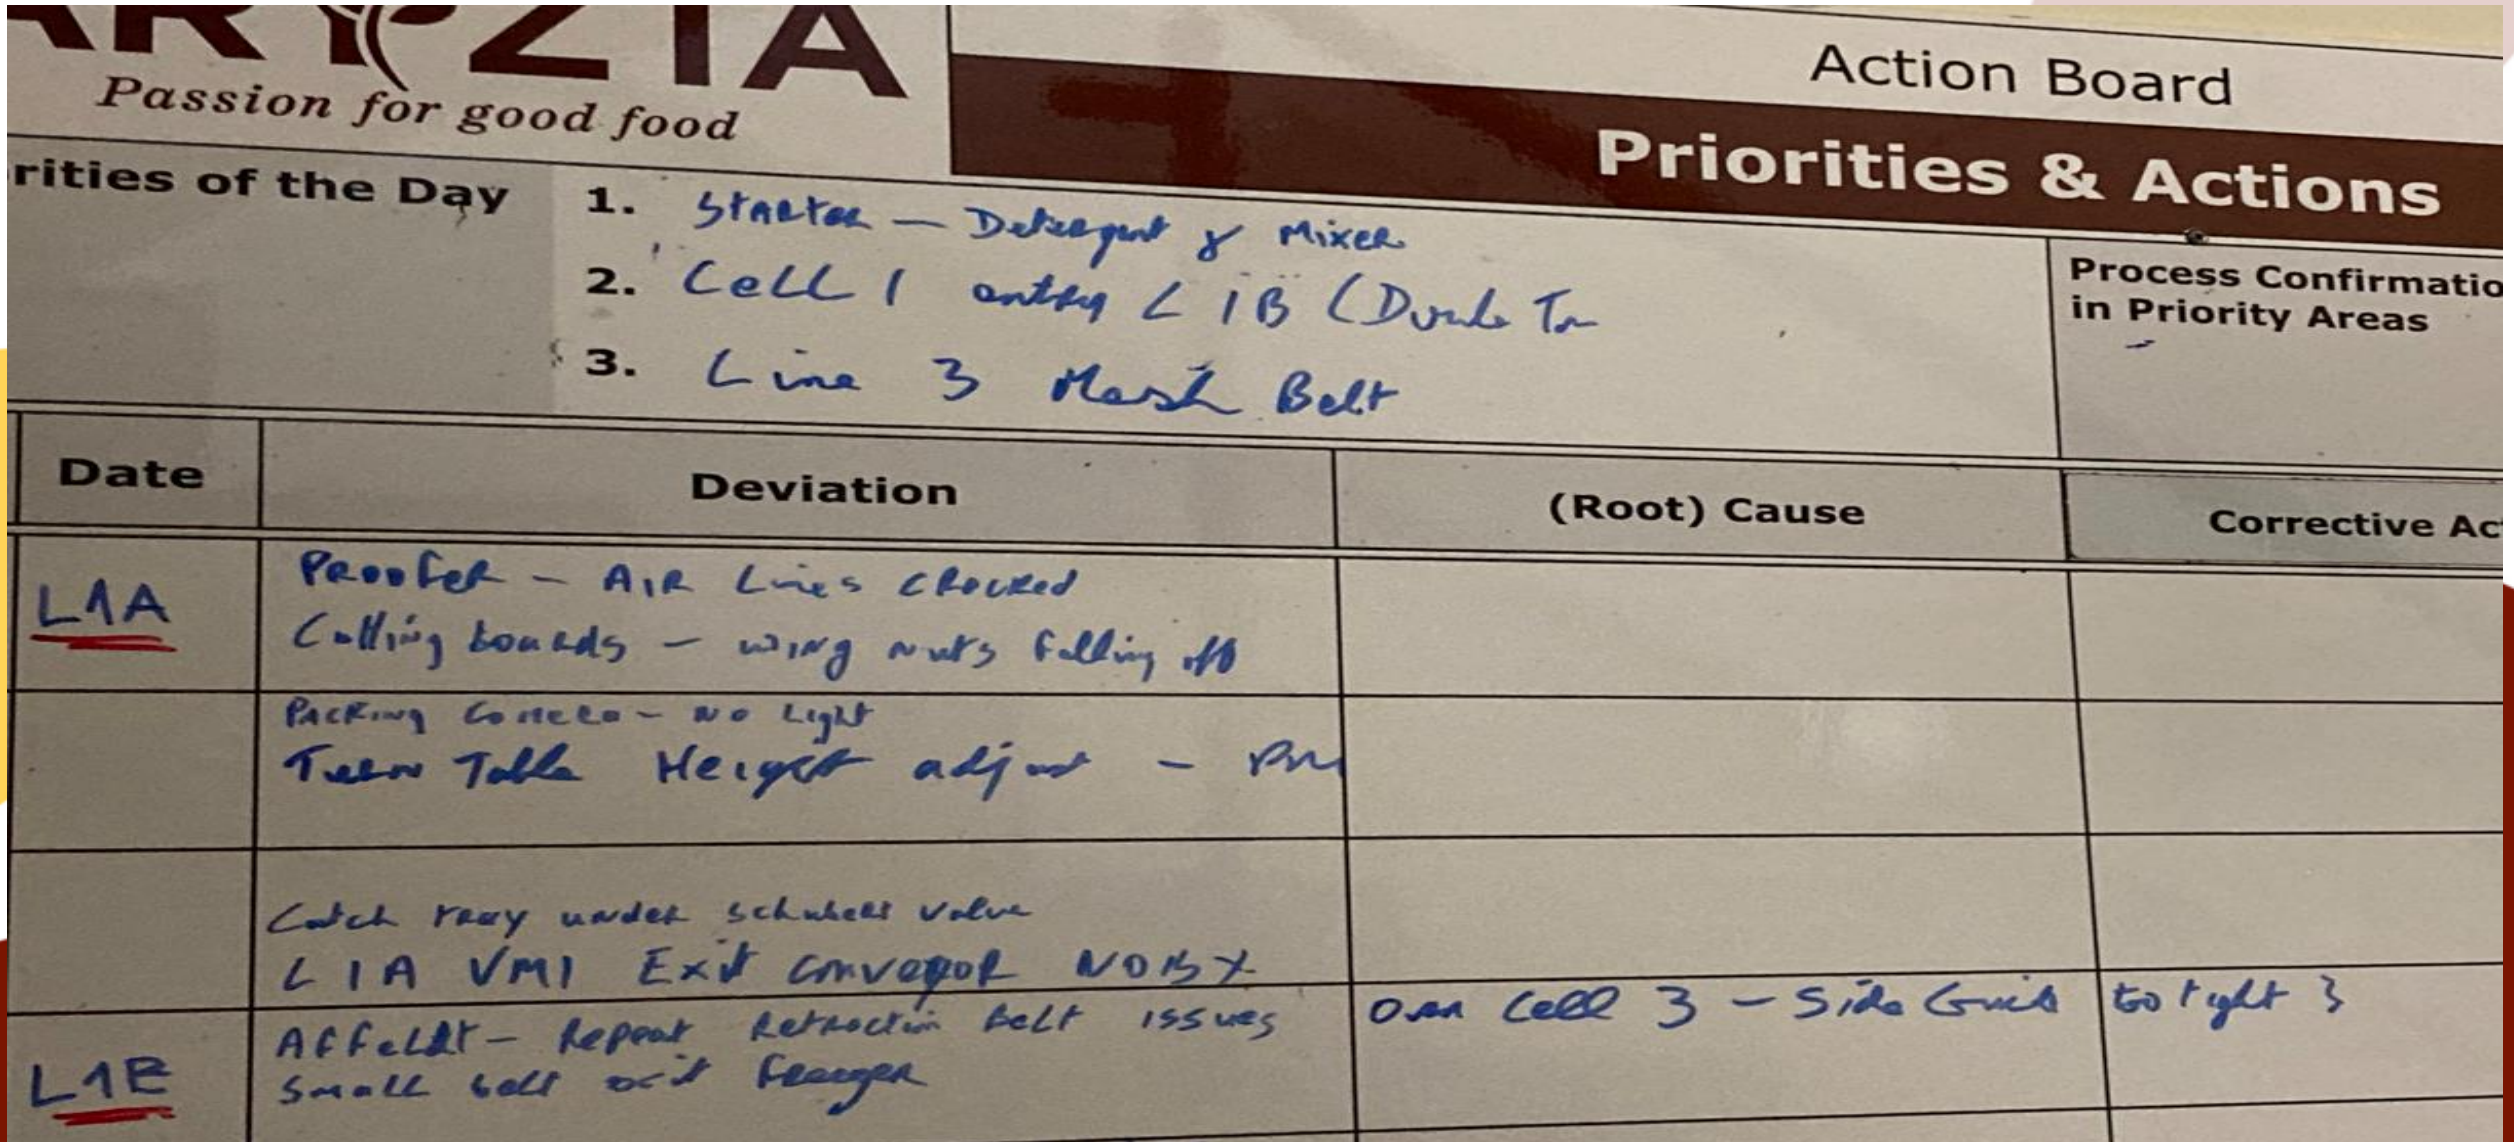 ARYZTA
Passion for good food
Action Board
Priorities & Actions
rities of the Day
1. Starter - Detergent & Mixer
2. Cell 1 entry L1B (
3. Line 3 Mesh Belt
Process Confirmatio
in Priority Areas
Date
Deviation
(Root) Cause
Corrective Ac
L1A
Proofer - AIR Lines cracked
Cutting boards - wing nuts falling off
Packing Camera - No Light
Turn Table Height adjust -
Catch tray under Schubert valve
L1A VMI Exit conveyor
L1B
Affeldt - Repeat Retraction belt issues
Small belt exit freezer
Oven Cell 3 - Side Guide to tight 3